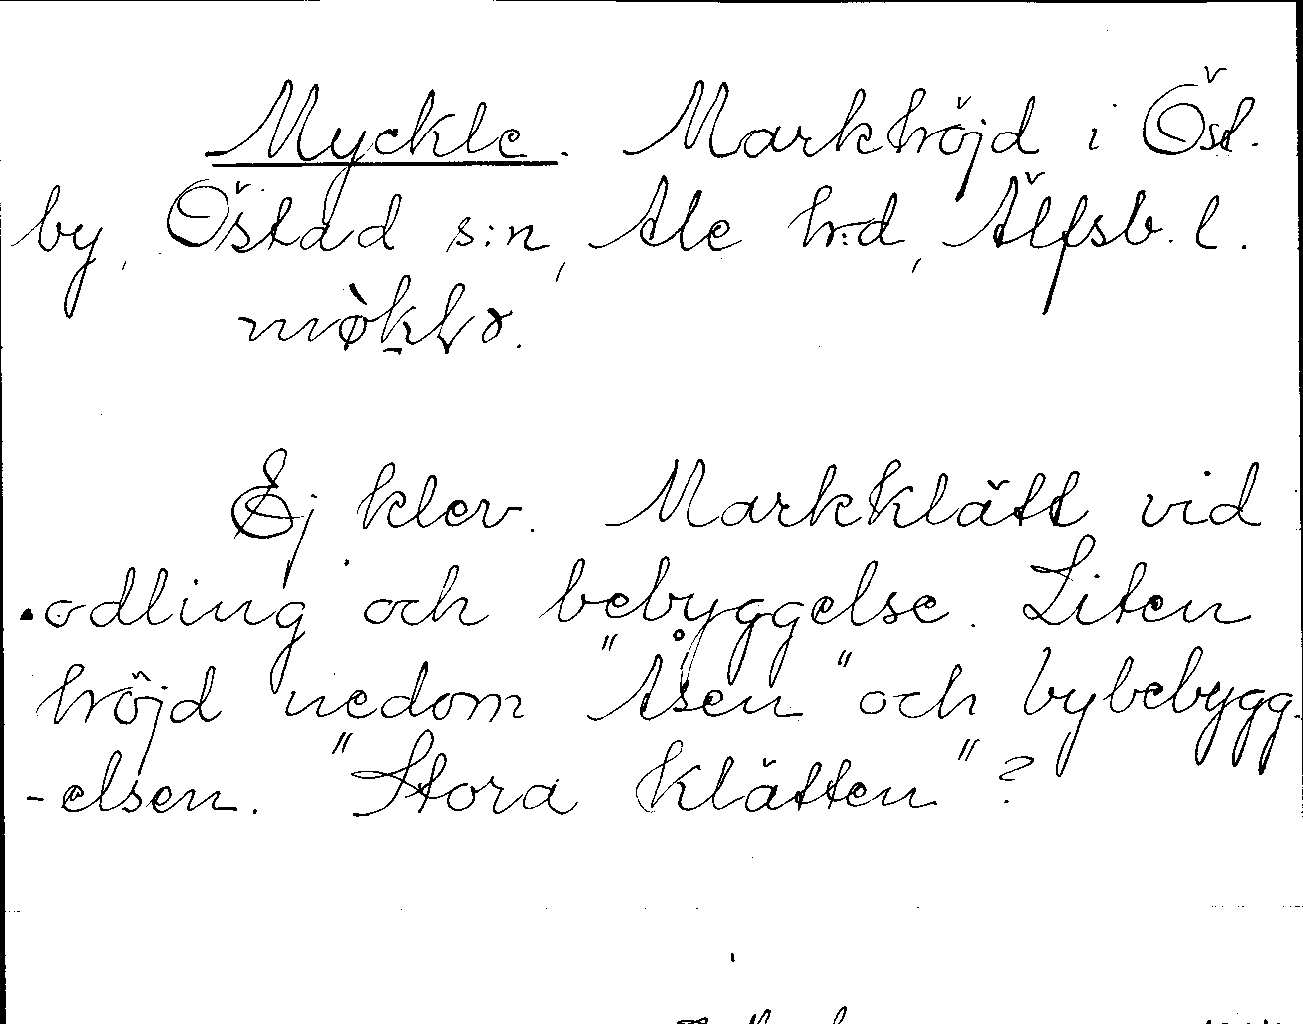 Myckle. Markhöjd i Öst-
by, Östad s:n, Ale h:d, Älfsb. l.
mø̀kḷɷ.
Ej klev. Markklätt vid
odling och bebyggelse. Liten
höjd nedom "Åsen" och bybebygg-
-elsen. "Stora Klätten"?